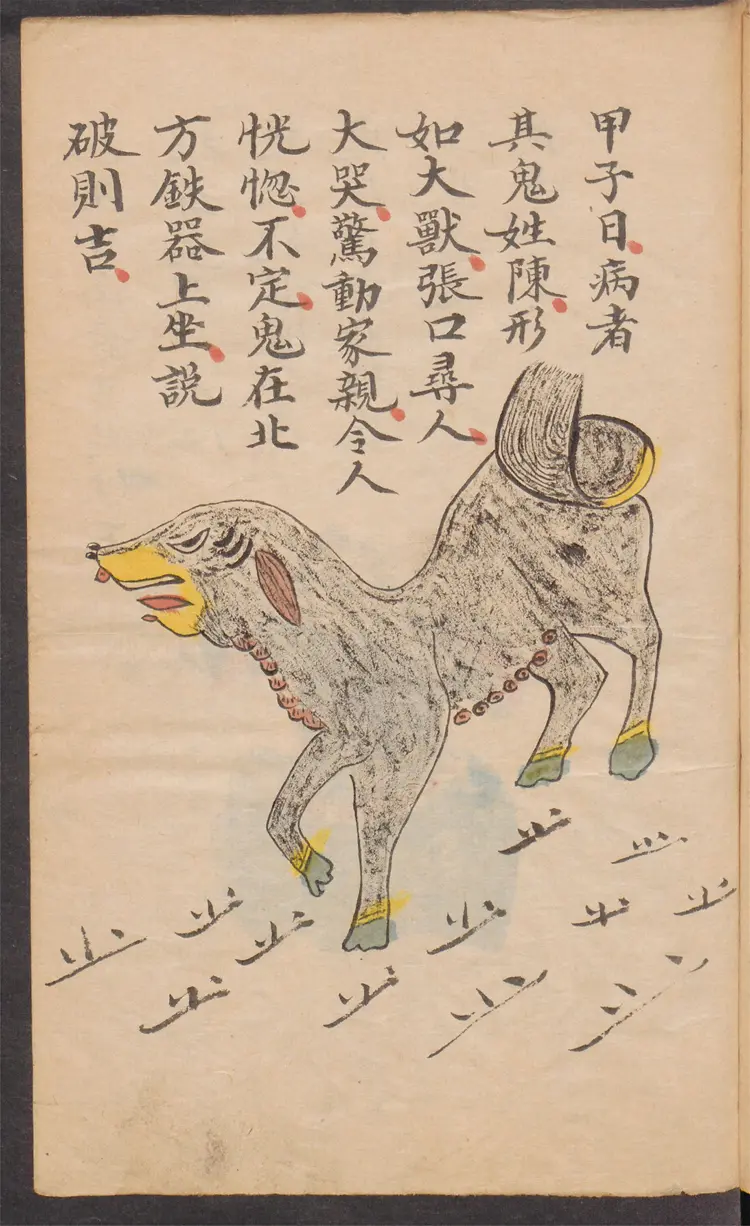 甲子日病者
其鬼姓陳形
如大獸張口尋人
大哭驚動家親令人
恍惚不定鬼在北
方鉄器上坐説
破則吉